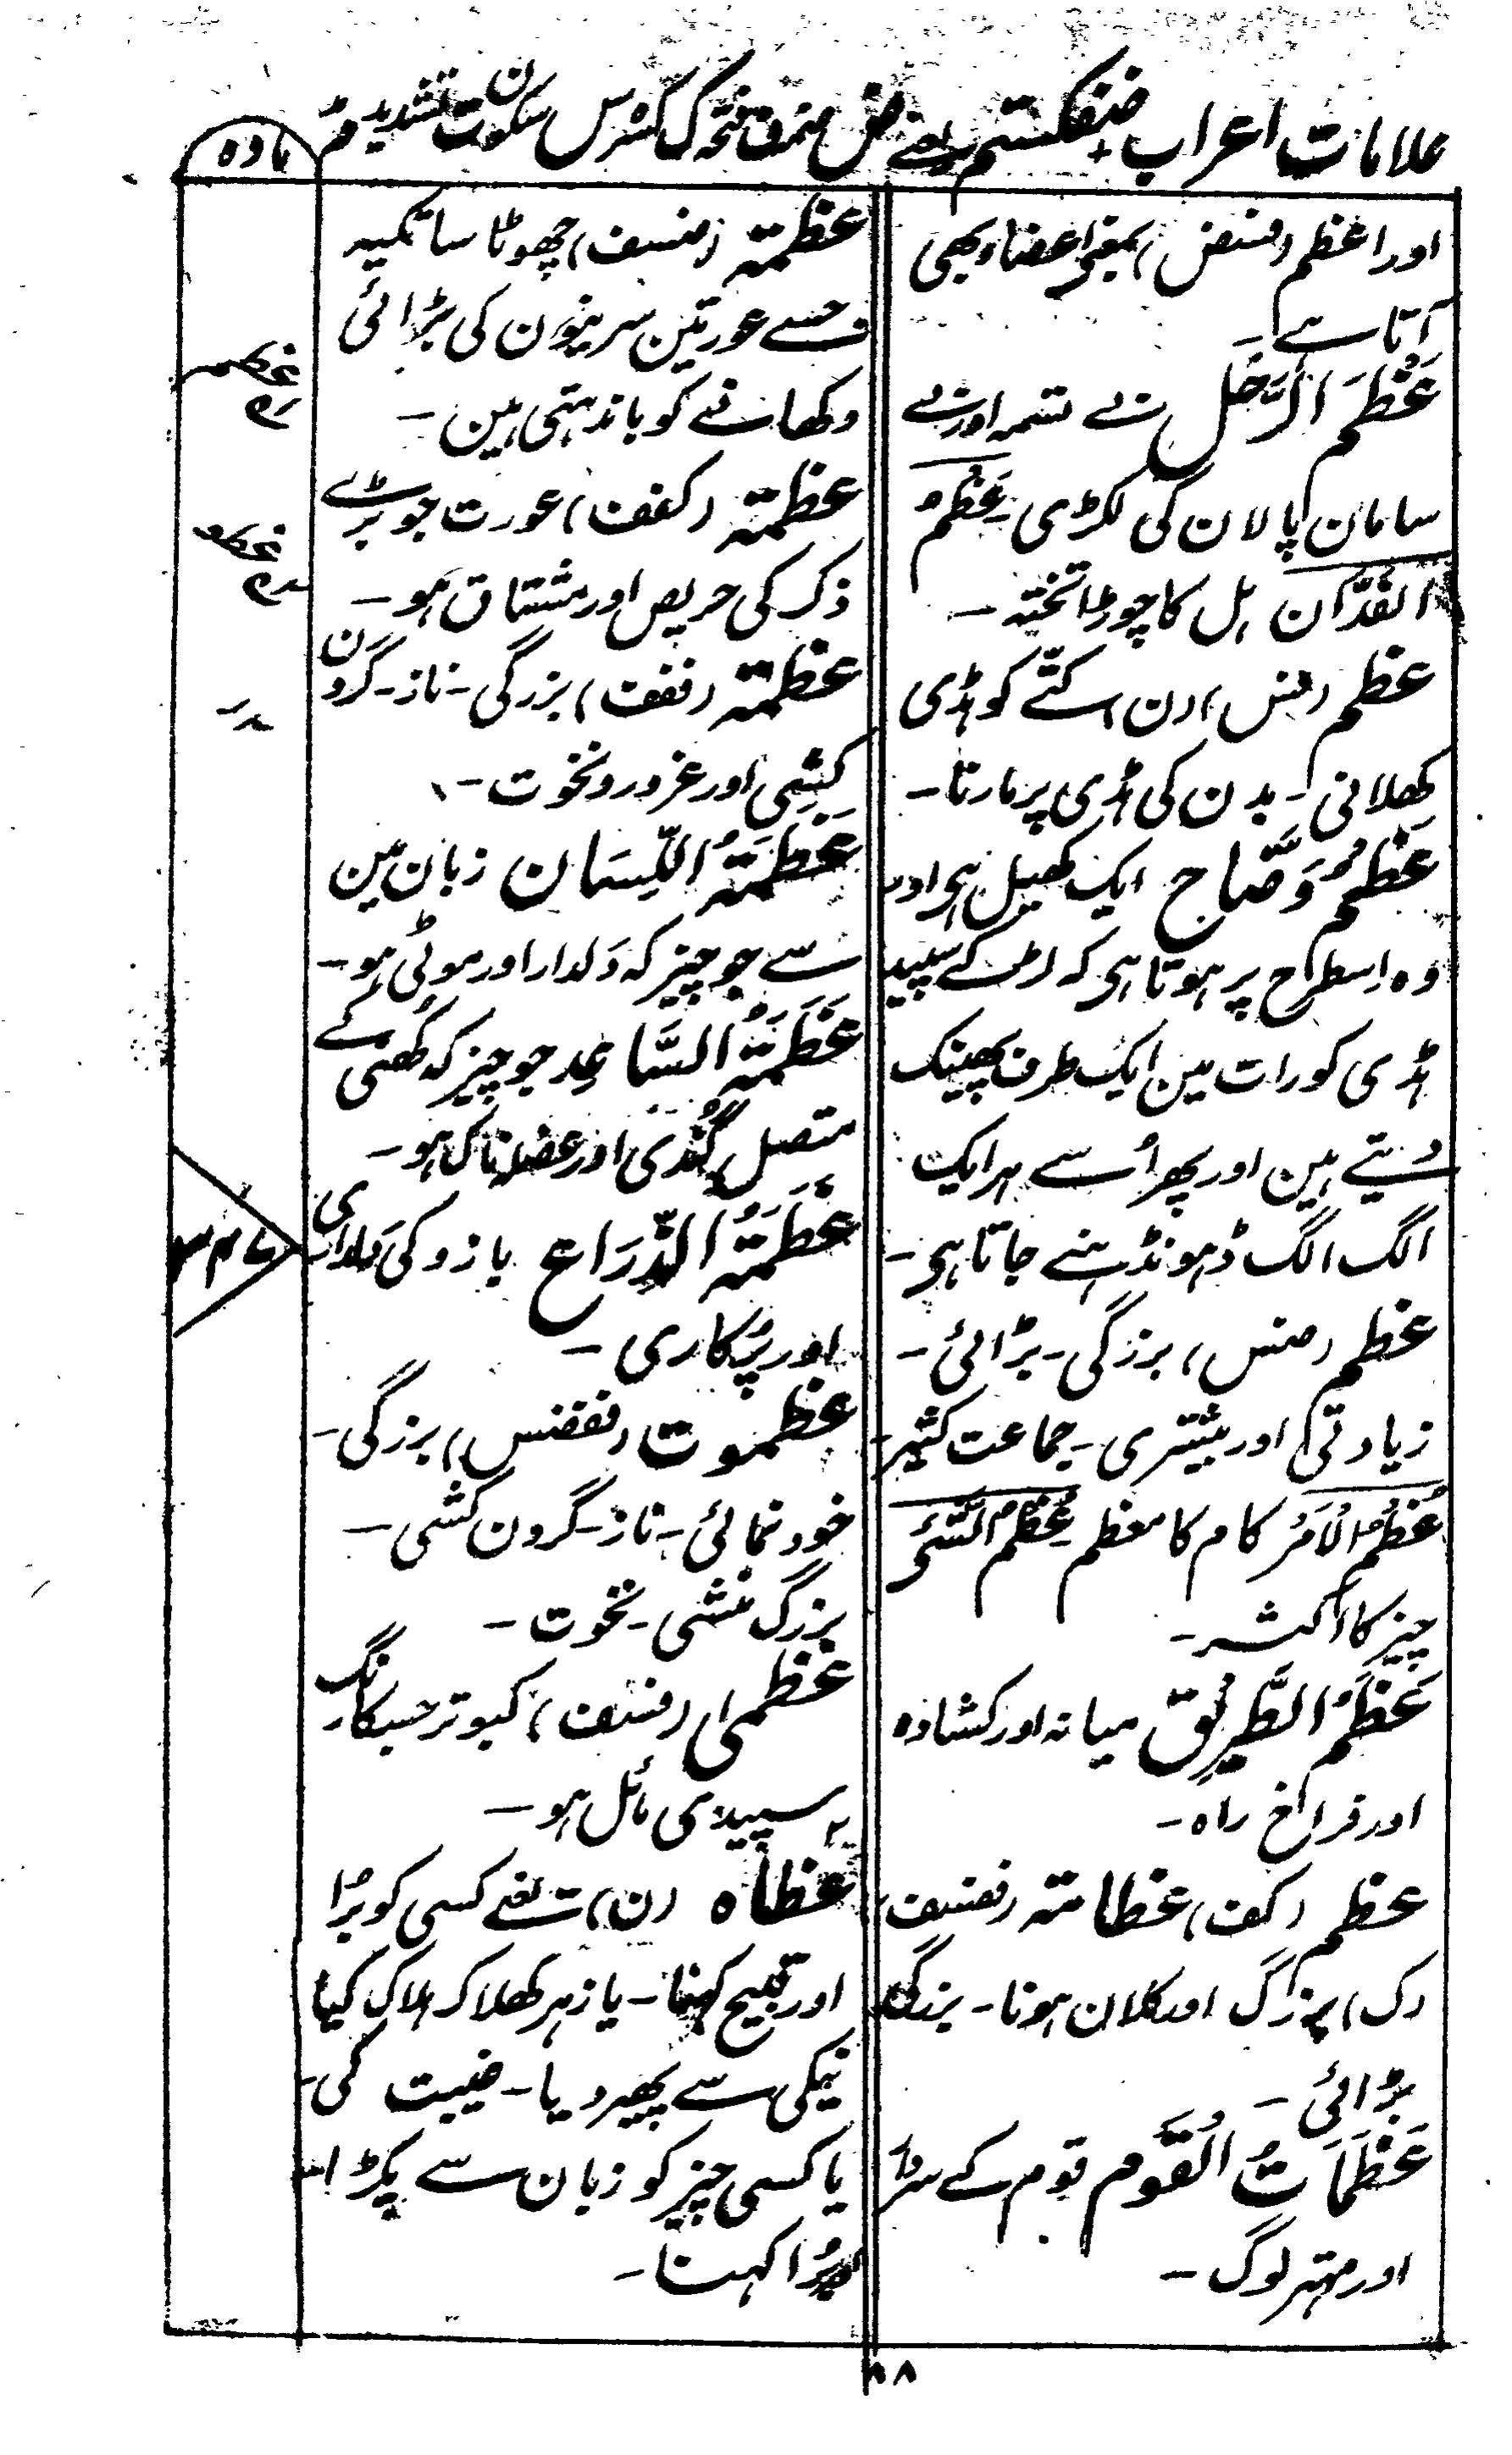 علامات اعراب ضفکستم یعنے ض ضمہ ف فتحہ ک کسر س سکون ت تشدید م مد
مادہ
اور اعظم (فسفض) بمعنی اعضا بھی
آتا ہے ۔
عَظْمُ الرَّحْل بے تسمہ اور بے
سامان پالان کی لکڑی ۔ عَظْمُ
الفَدَّان ہل کا چوڑا تختہ ۔
عظم (فس) (ن) کتّے کو ہڈی
کھلانی ۔ بدن کی ہڈی پر مارنا ۔
عَظْمُ وَضَّاح ایک کھیل ہی اور
وہ اسطرح پر ہوتا ہی کہ لڑکے سپید
ہڈی کو رات مین ایک طرف پھینک
دیتے ہین اور پھر اُسے ہر ایک
الگ الگ ڈہونڈہنے جاتا ہی ۔
عظم (ضس) بزرگی ۔ بڑائی ۔
زیادتی اور بیشتری ۔ جماعت کثیر ۔
عُظْمُ الاَمْر کام کا معظم عُظْمُ الشَّیْ
چیز کا اکثر ۔
عَظَمُ الطَّرِیْق میانہ اور کشادہ
اور فراخ راہ ۔
عظم (کف) عظامتہ (ففسف)
(ک) بزرگ اور کلان ہونا ۔ بزرگی
بڑائی ۔
عَظَمَاتُ القَوْم قوم کے سردار
اور مہتر لوگ ۔
عظمتہ (ضسف) چھوٹا سا تکیہ
جسے عورتین سرینون کی بڑائی
دکھانے کو باندہتی ہین ۔
عظمتہ (کفف) عورت جو بڑے
ذکر کی حریص اور مشتاق ہو ۔
عظمتہ (ففف) بزرگی ۔ ناز ۔ گردن
کشی اور غرور و نخوت ۔
عَظَمَتُہُ اللِّسَان زبان مین
سے جو چیز کہ دَلدار اور موٹی ہو ۔
عَظَمَتُہُ السَّاعِد جو چیز کہ کُھنی کے
متصل گُندی اور عضلہ ناک ہو ۔
عَظَمَتُہُ الذِّرَاع بازو کی دَلداری
اور پُرکاری ۔
عظموت (ففضس) بزرگی ۔
خود نمائی ۔ ناز ۔ گردن کشی ۔
بزرگ منشی ۔ نخوت ۔
عظمی (فسف) کبوتر جسکا رنگ
سپیدی مائل ہو ۔
عظاہ (ن) یعنے کسی کو بُرا
اور قبیح کہنا ۔ یا زہر کھلا کر ہلاک کیا
نیکی سے پھیر دیا ۔ غیبت کی ۔
یا کسی چیز کو زبان سے پکڑا
بُرا کہنا ۔
۸۸